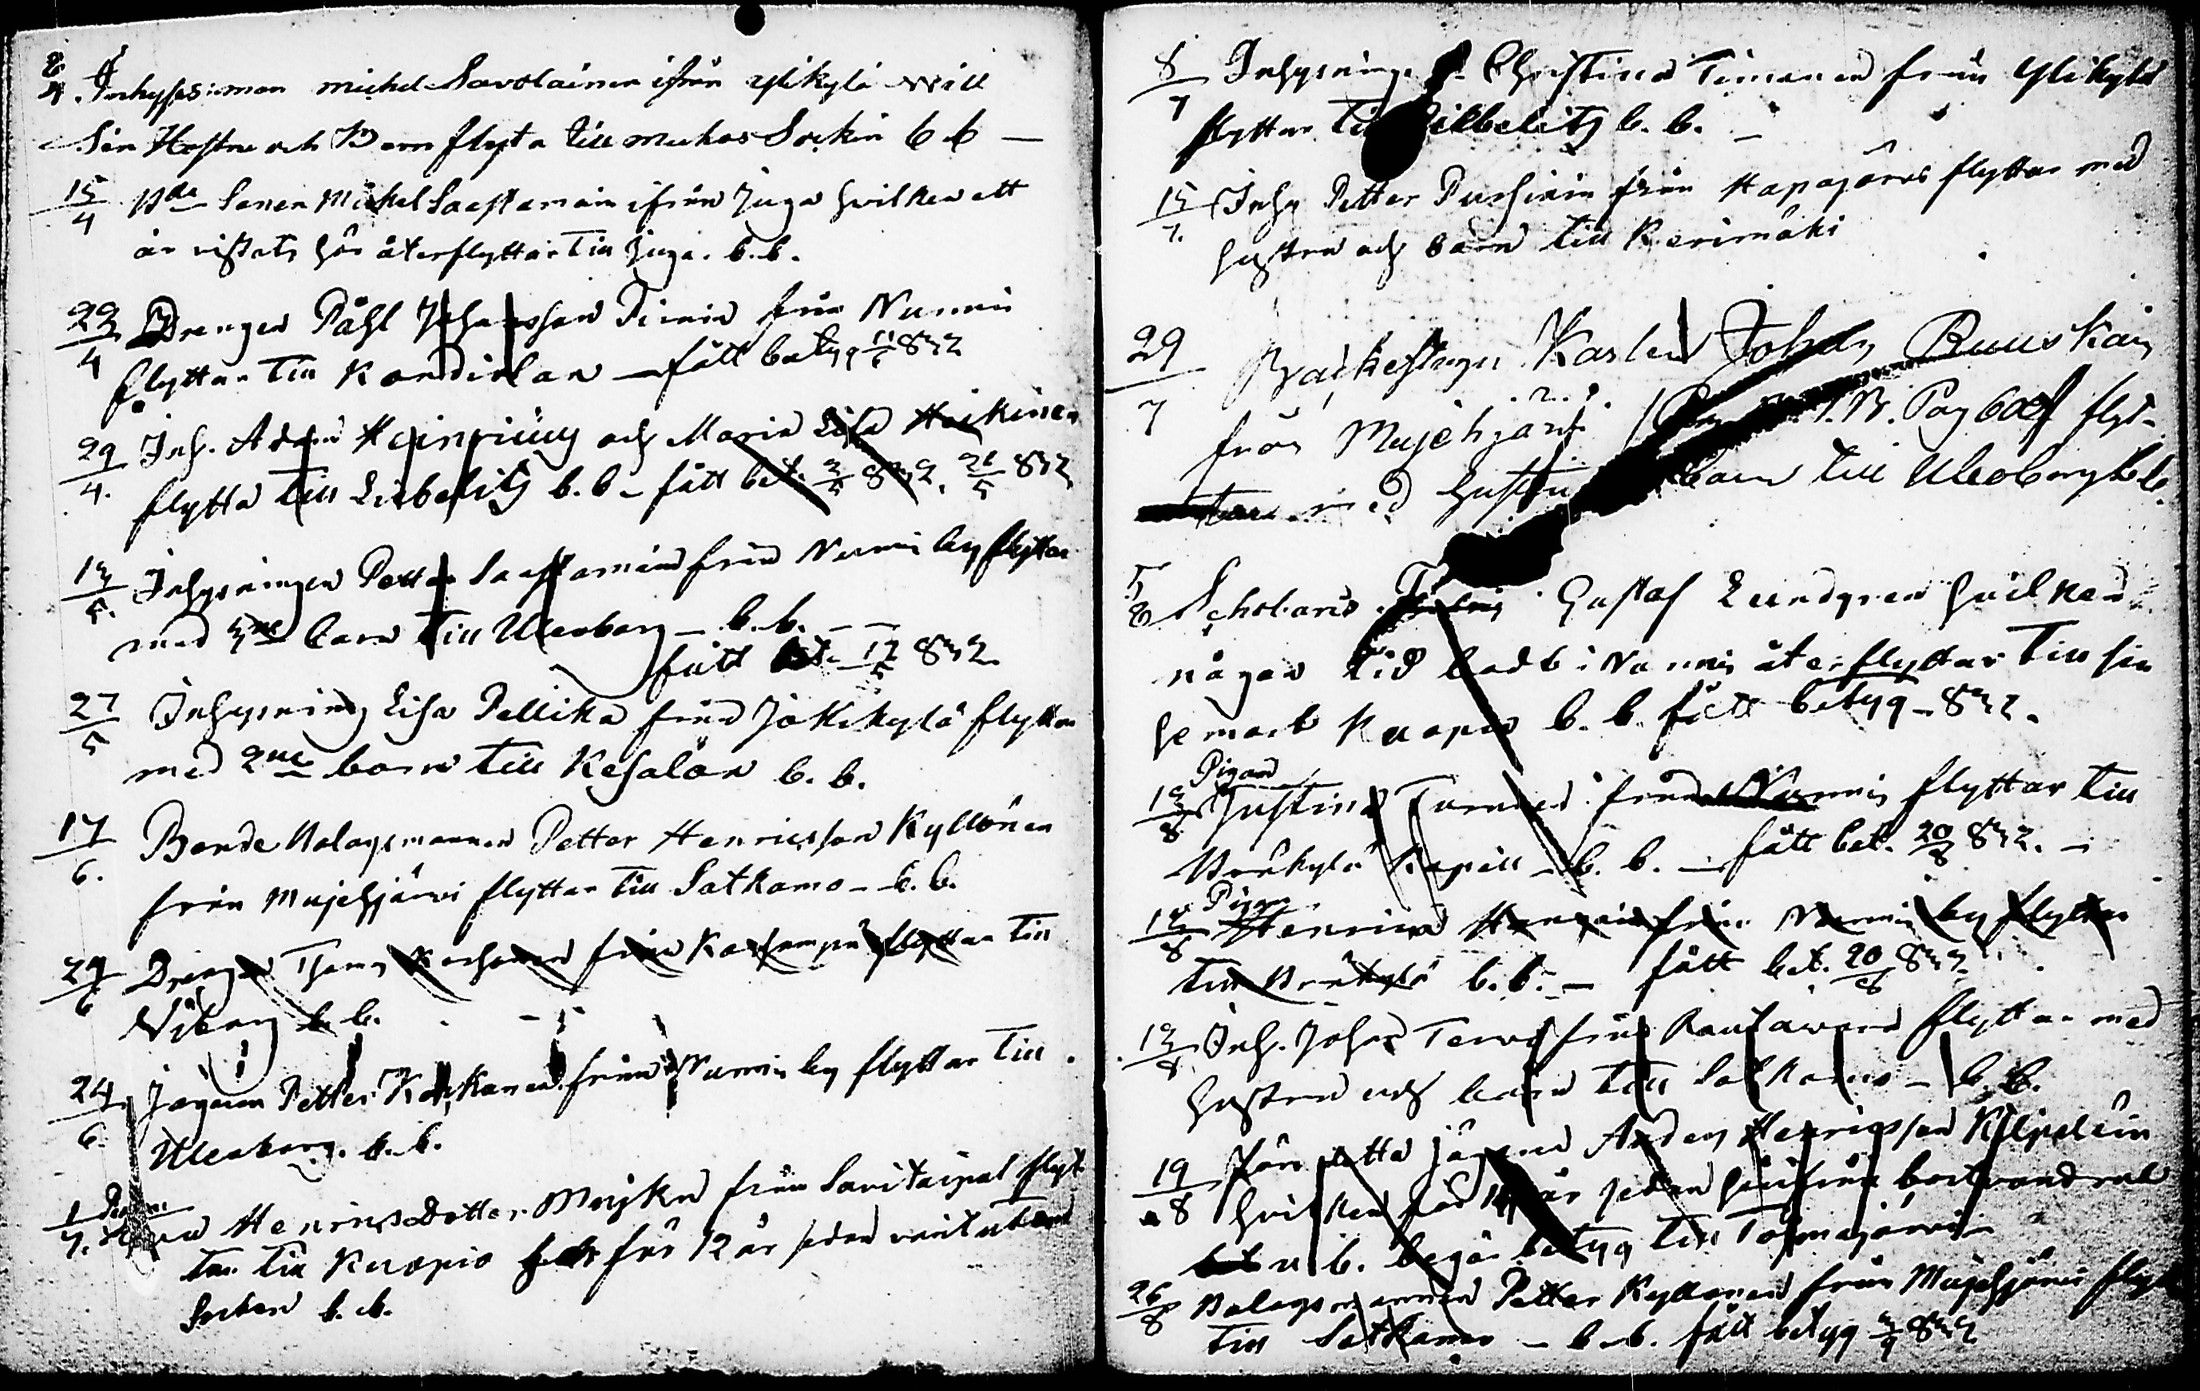 8/4 Inhysesman michel Savolainen ifrån ylikylä will
Sin Hustru och Barn flyta till muhos Sockn b b —
15/4 Bde Sonen Michel Saastamoin ifrån Juga hvilken ett
år vistats här återflyttar till Juga. b. b.
22/4 Drengen Påhl Johansson Piirain från Nurmis
flyttar till Kondiolax — fått betyg 11/5 832
29/4. Inh. Adam Heinriüus och Maria Lisa Heikinen
flytta till Libelitz b. b — fått bet. 3/5 832, 21/5 832
13/5. Inhysningen Petter Saastamoin från Nurmis by flyttar
med 3ne barn till Uleåborg — b. b. —
fått bet. 12/5 832.
27/5 Inhysning Lisa Pellika från Jokikylä flyttar
med 2ne barn till Kesalax b. b.
17/6. Bonde Bolagsmannen Petter Henricsson Kyllönen
från Mujehjärvi flyttar till Sotkamo — b. b.
24/6 Drengen Thoms Korhonen från Karhunpä flyttar till
Wiborg b. b.
24/6. Jägaren Petter Kokkonen från Nurmis by flyttar till
Uleåborg. b. b.
1/7. Henricsdotter Mujkku från Savitaipal flyt
tar till Kuopio för 12 år sedan varit utom
Socken b. b.
8/7 Inhysninge Christina Timonen från Ylikylä
flyttar till Libbelitz b. b. —
15/7. Inhy Petter Pursiain från Hapajärvi flyttar med
hustru och barn till Kerimäki
29/7 Backestugu Karlen Johan Ruuskain
från Mujehjärvi Pag 602 flyt-
tar med hustru barn till Uleoborg b. b.
5/8 Scholaris Gustaf Lundgren hvilken
någon tid bodt i Nurmis återflyttar till sin
hemort Kuopio b. b. fått betyg — 832.
Pigan
13/8 Justina Turunen från Nurmis flyttar till
Bräkylä Kapell — b. b. — fått bet. 20/8 832. —
Pigan
13/8 Henrica från Nurmis by flyttar
till Bräkylä b. b. — fått bet. 20/8 832
13/8 Inh. Johan Tervo från Rautavara flyttar med
hustru och barn till Sotkamo — b. b.
19/8 För detta jägaren Anders Henricsson Kilpeläin
hvilken för år sedan härifrån bortvandrat
u. b. begär betyg till Tohmajärvi
26/8 Bolagsmannen Petter Kyllönen från Mujehjärvi flyt
till Sotkamo — b. b. fått betyg 3/9 832